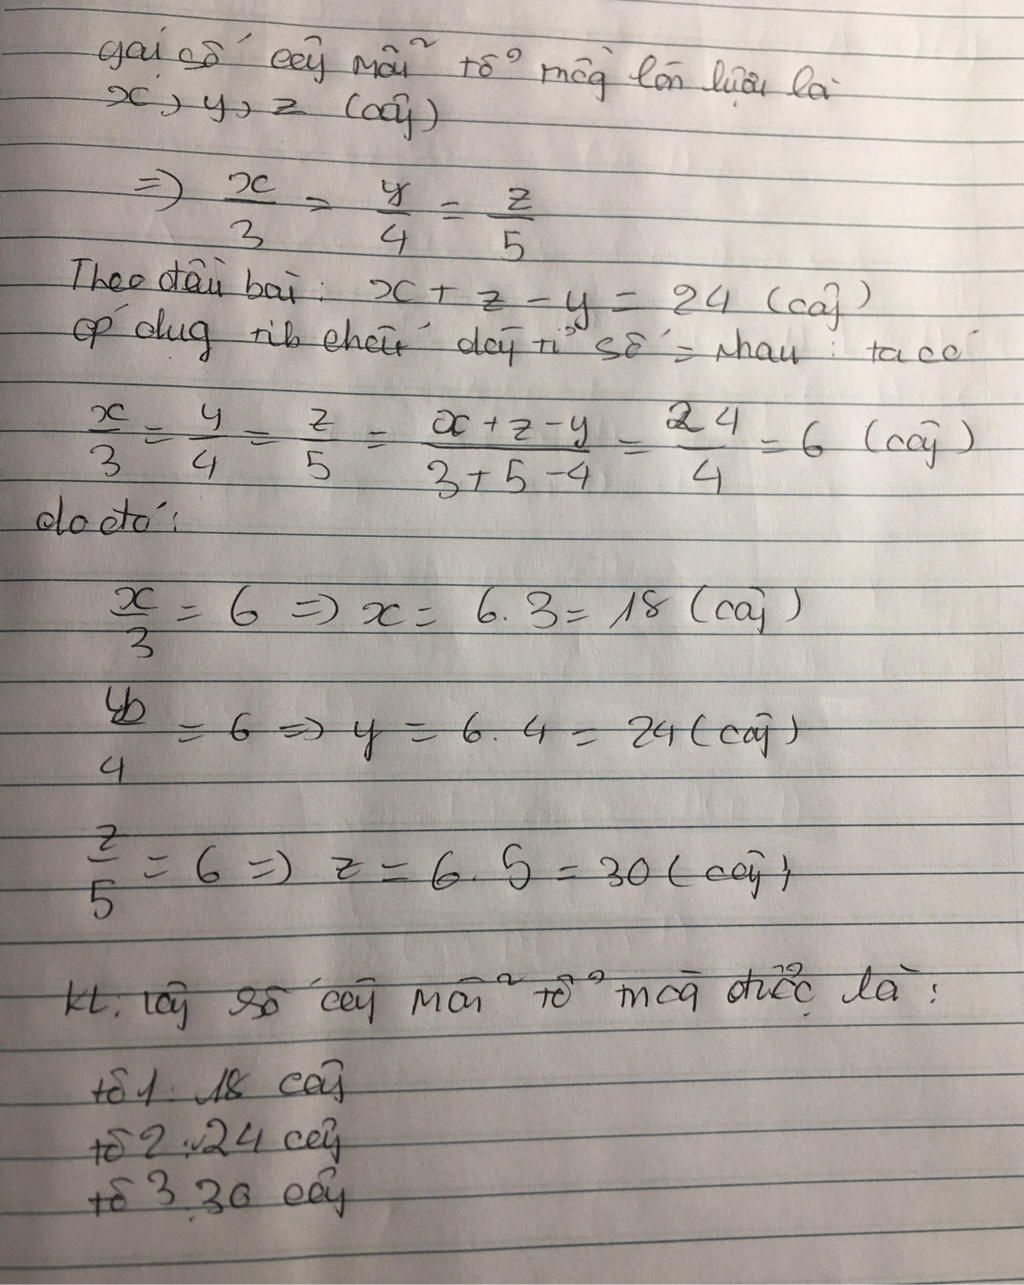 gọi số cây mỗi tổ trồng lần lượt là
x, y, z (cây)
=> x/3 = y/4 = z/5
Theo đầu bài: x + z - y = 24 (cây)
áp dụg t/c dãy tỉ số = nhau: ta có
x/3 = y/4 = z/5 = (x + z - y)/(3 + 5 - 4) = 24/4 = 6 (cây)
do đó:
x/3 = 6 => x = 6. 3 = 18 (cây)
y/4 = 6 => y = 6. 4 = 24 (cây)
z/5 = 6 => z = 6. 5 = 30 (cây)
KL: vậy số cây mỗi tổ được là:
tổ 1: 18 cây
tổ 2: 24 cây
tổ 3 30 cây